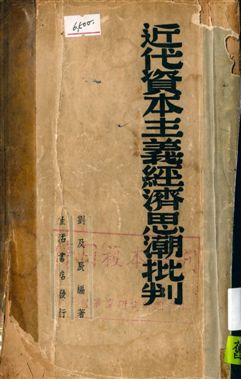 6,500.
近代資本主義經濟思潮批判
劉及辰編著
生活書店發行